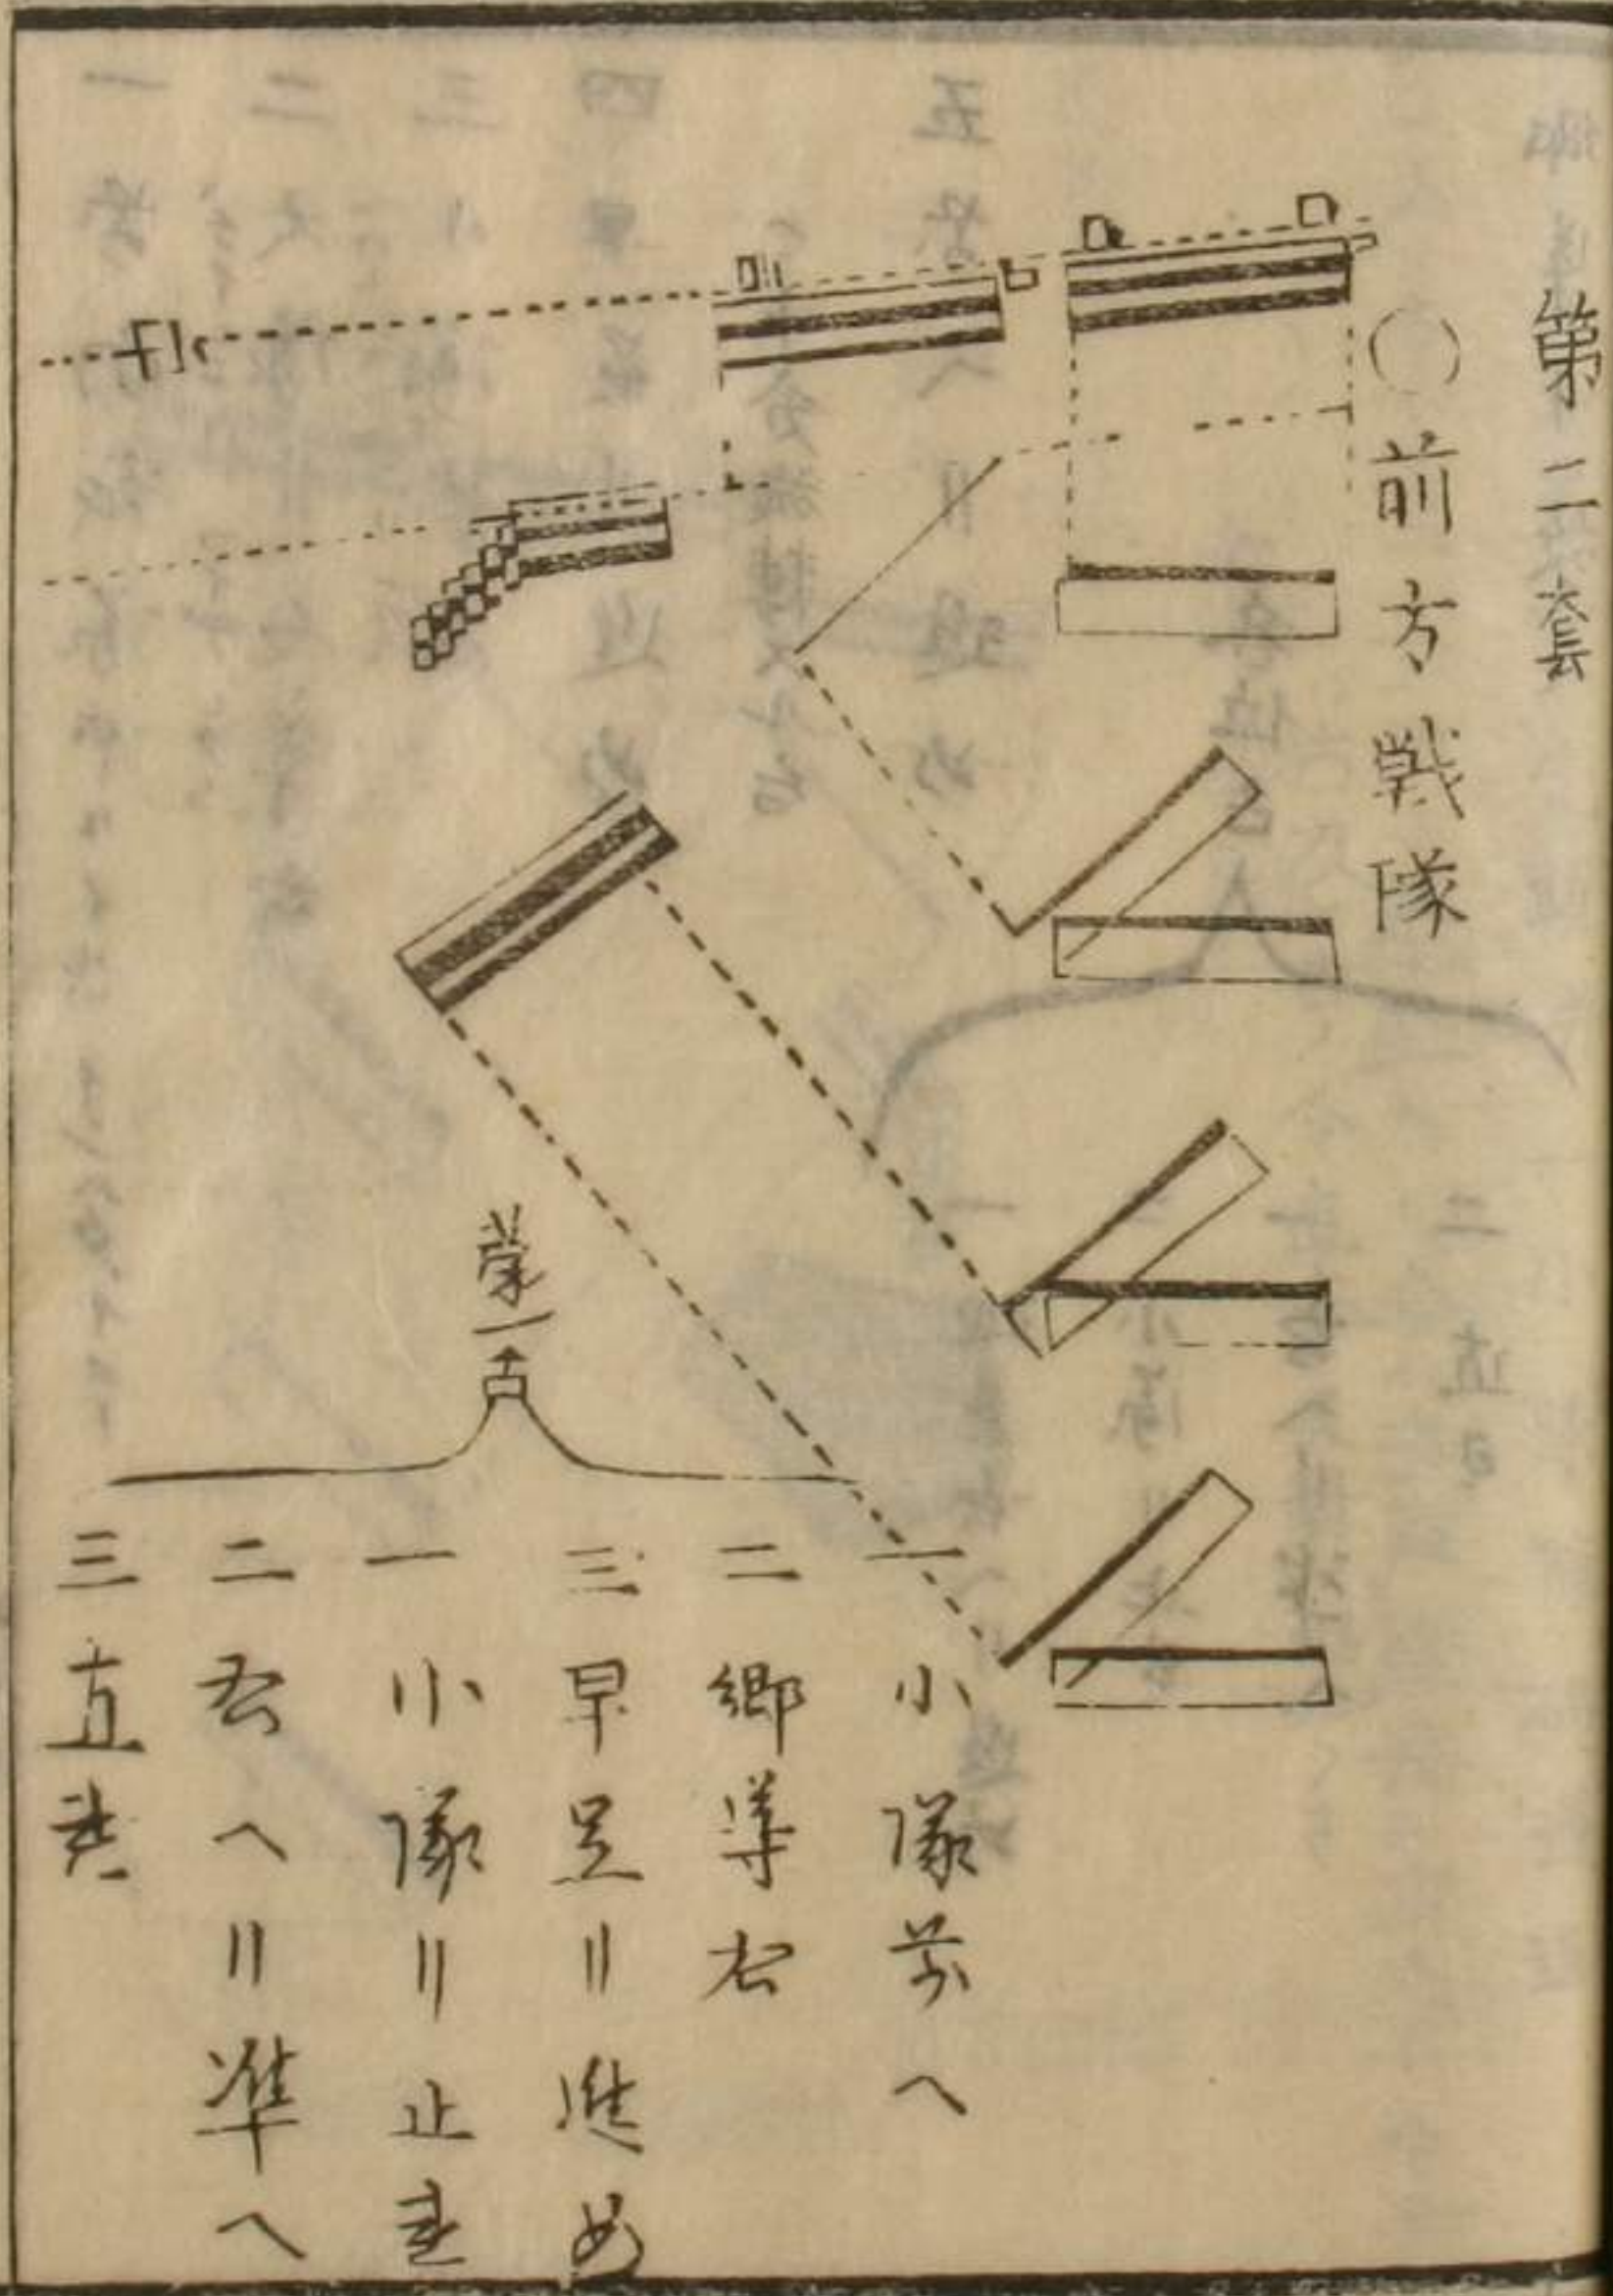 第二套
〇前方戦隊
一小隊前へ
二郷導右
三早足〃進め
一小隊〃止れ
二右へ〃準へ
三直れ